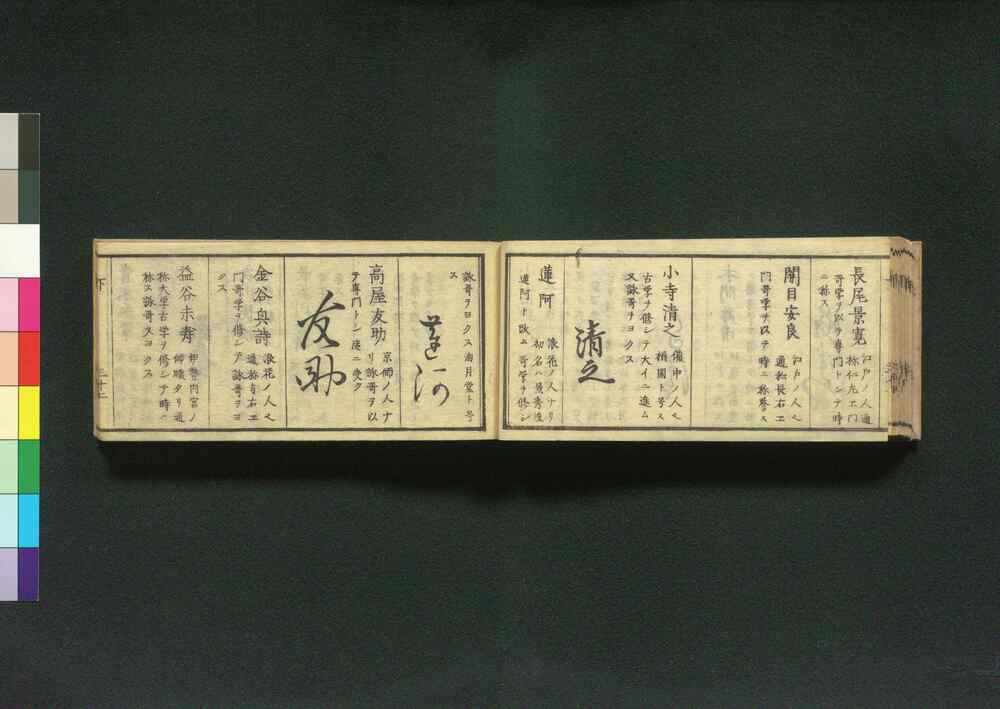 長尾景寛 江戸ノ人通
称仁左エ門
哥学ヲ以テ専門トシテ時
ニ称ス
関目安良 江戸ノ人ヽ
通称長右エ
門哥学ヲ以テ時ニ称誉ス
小寺清之 備中ノ人ヽ
楢園ト号ス
古学ヲ修シテ大イニ進ム
又詠哥ヲヨクス
清之
蓮阿 浪花ノ人ナリ
初名ハ
蓮阿ト改ム哥学ヲ修シ
詠哥ヲヨクス 満月堂ト号
ス
蓮阿
高屋友助 京師ノ人ナ
リ詠哥ヲ以
テ専門トシ
友助
金谷與詩 浪花ノ人ヽ
通称吉右エ
門哥学ヲ修シテ詠哥ヲヨ
クス
益谷末寿 伊勢内宮ノ
師職タリ通
称大学古学ヲ修シテ時ニ
称ス詠哥又ヨクス
下
三十三